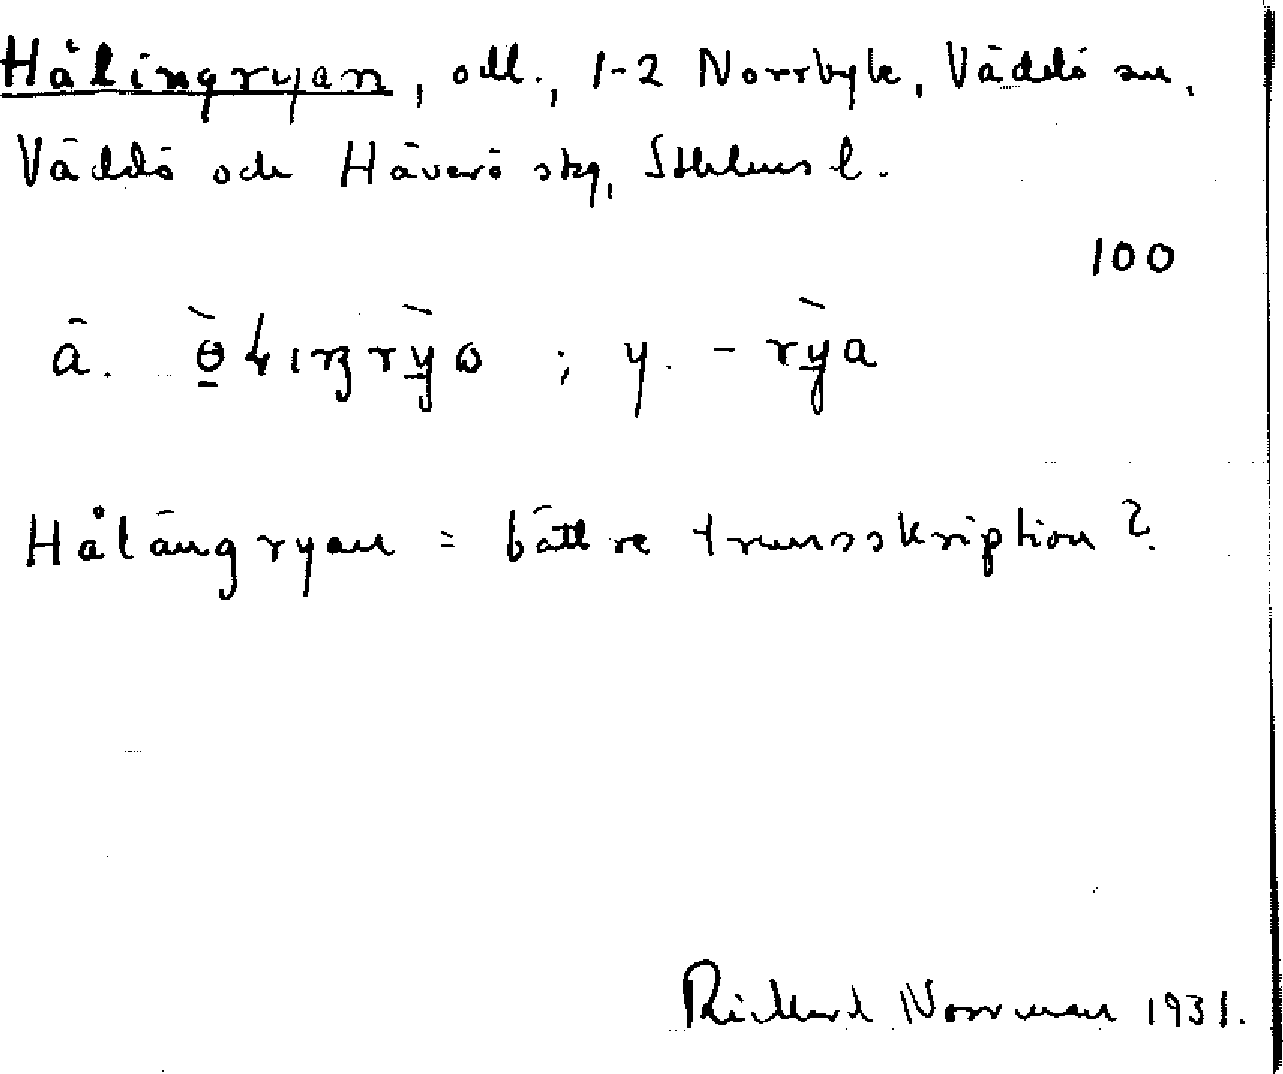 Hålingryan, odl., 1-2 Norrbyle, Väddö sn.
Väddö och Häverö skg, Sthlms l.
100
ä. ; y. - rỳa
Hålängryan = bättre transskription?
Rickard Norrman 1931.